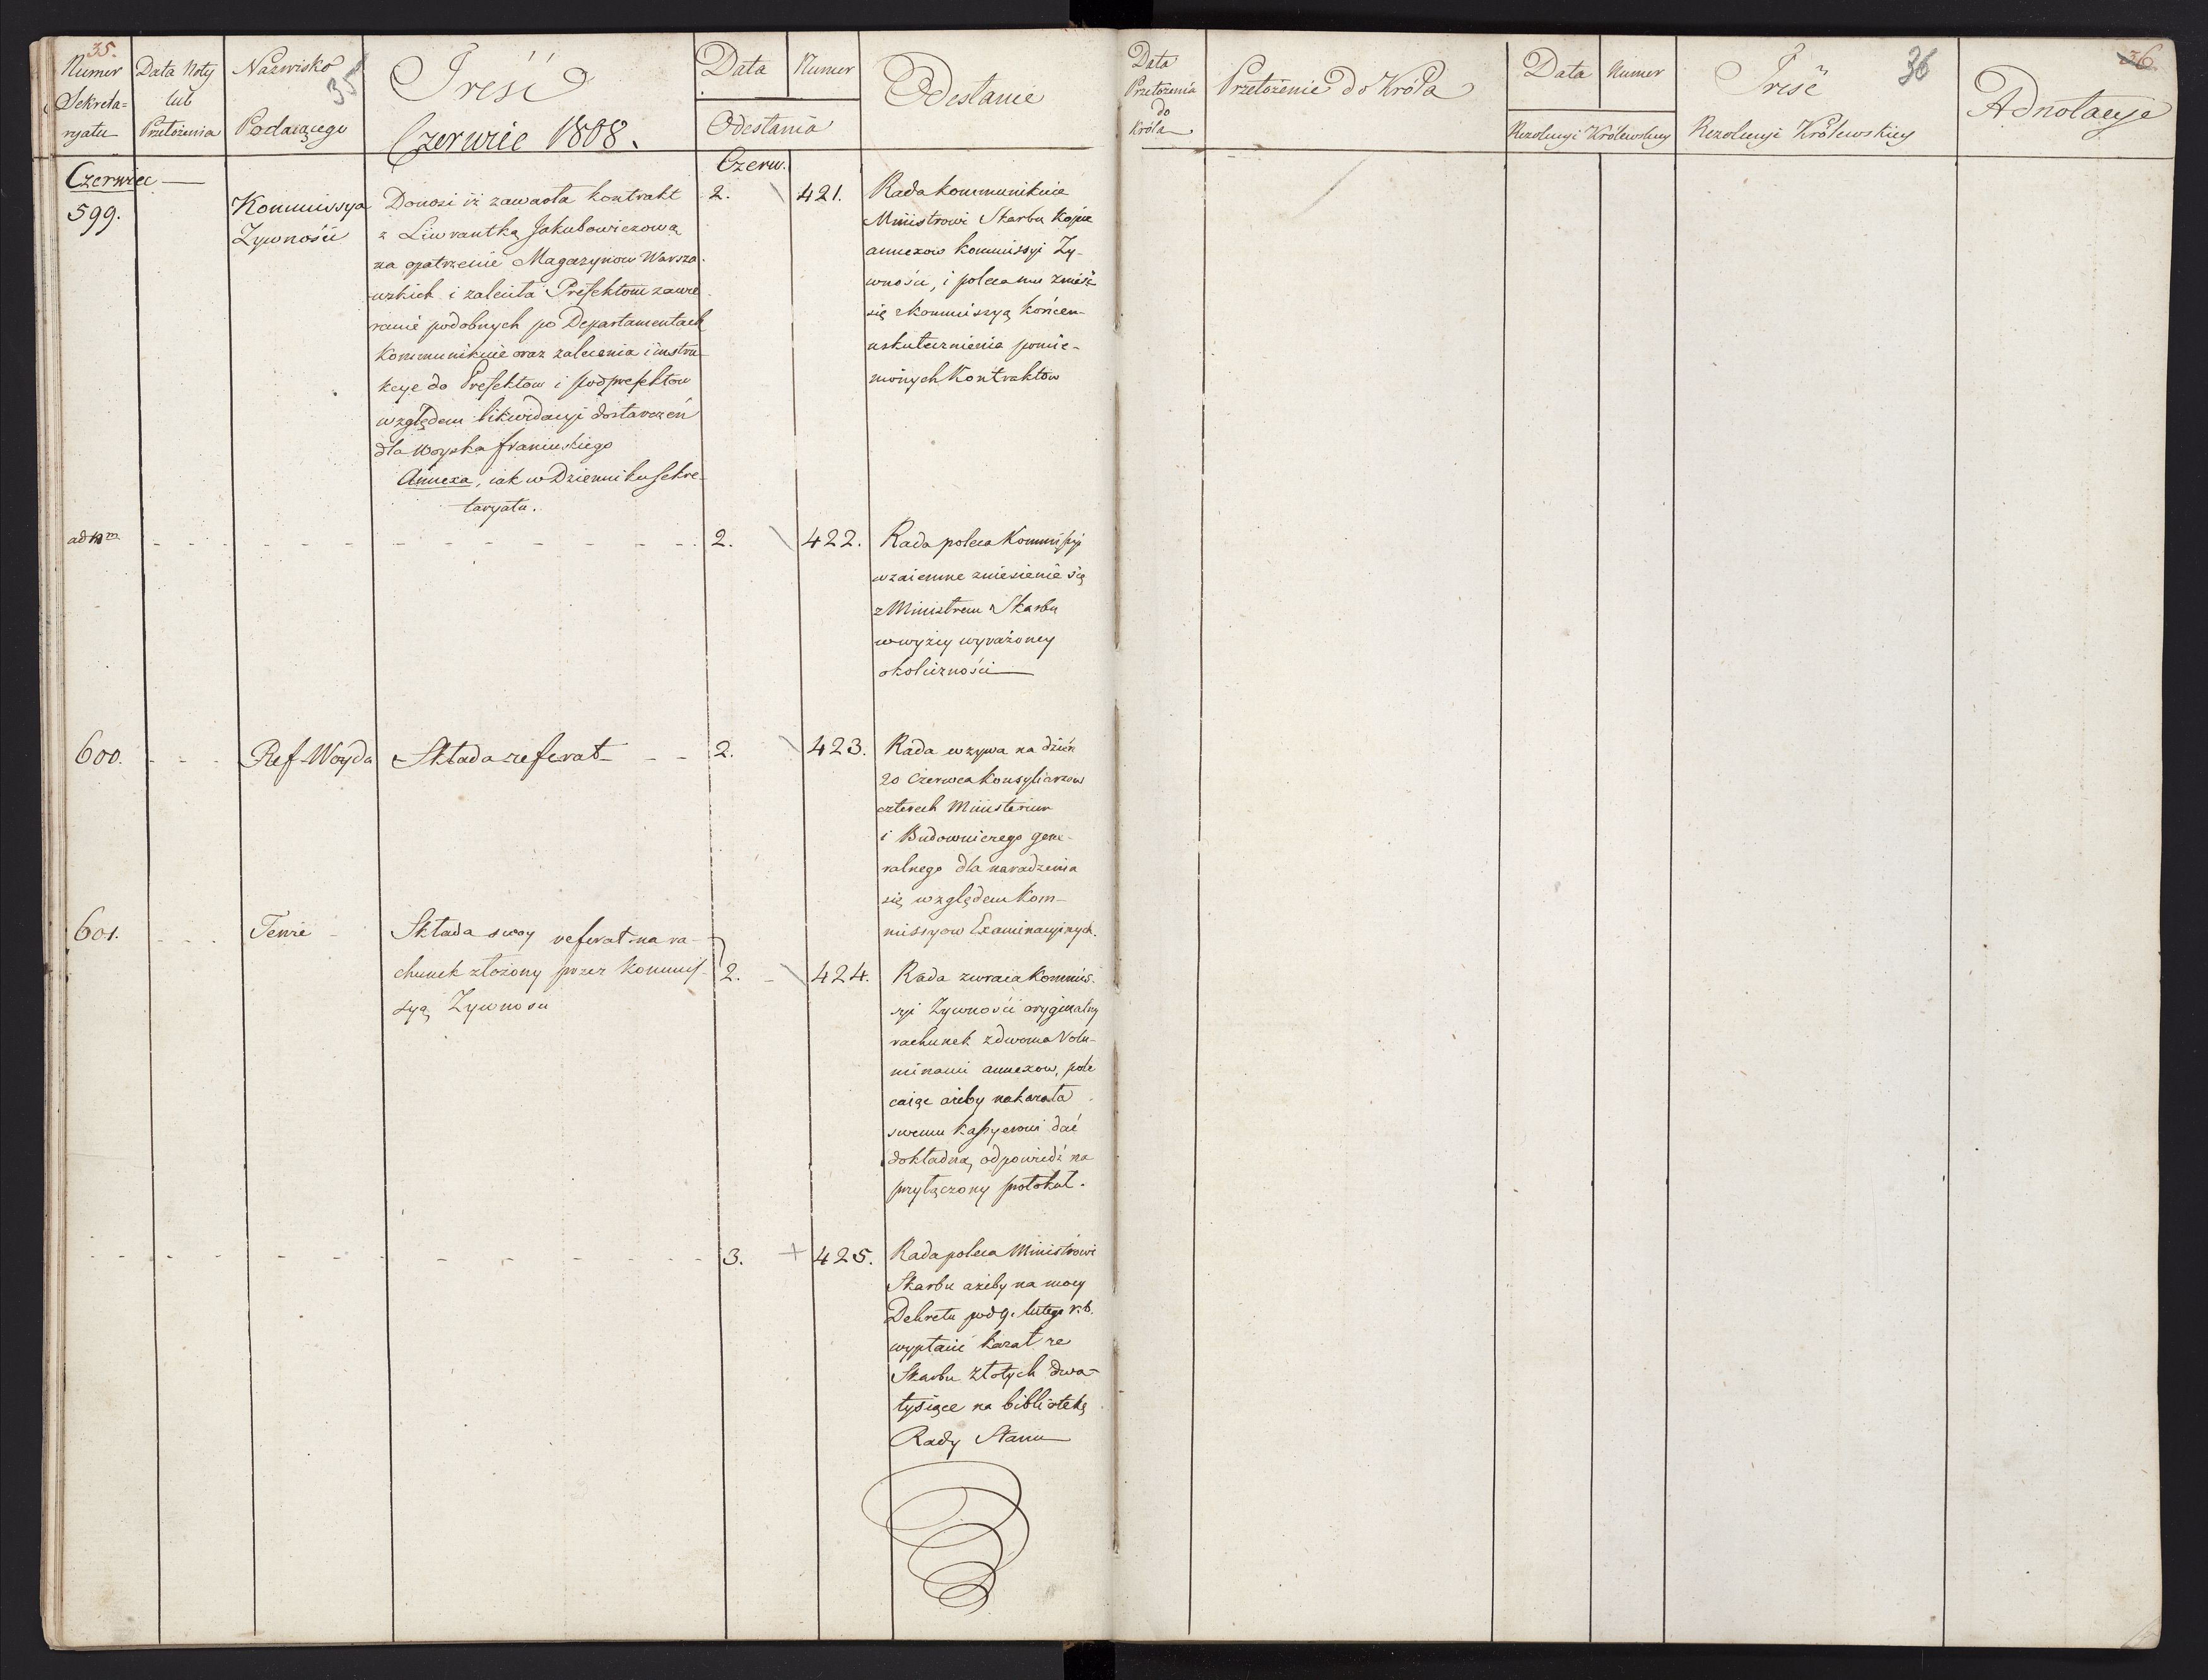 35.
35
Numer
Sekreta=
ryatu
Data Noty
lub
Przełożenia
Nazwisko
Podaiącego
Treść
Czerwiec 1808.
Data
Numer
Odesłania
Odesłanie
Czerwiec
599.
Kommissya
Zywności
Donosi iż zawarła kontrakt
z Liwrantką Jakubowiczową
na opatrzenie Magazynow Warsza-
wskich i zaleciła Prefektom zawie-
ranie podobnych po Departamentach
Kommunikuie oraz zalecenia i instru-
kcye do Prefektow i podprefektow
względem likwidacyi dostarczeń
dla Woyska francuskiego
Annexa, iak w Dzienniku Sekre-
taryatu.
Czerw.
2.
421.
Rada kommunikuie
Ministrowi Skarbu kopie
annexow kommissyi Zy-
wności, i poleca mu znieść
się z kommissyą końcem
uskutecznienia pomie-
nionych Kontraktow
2.
422.
Rada poleca Kommissyi
wzaiemne zniesienie się
z Ministrem Skarbu
w wyżey wyrażoney
okoliczności
600.
Ref Woyda
Składa referat
2.
423.
Rada wzywa na dzień
20 Czerwca Konsyliarzow
czterech Ministeriow
i Budowniczego gene-
ralnego dla naradzenia
się względem Kom-
missyow Examinacyinych.
601.
Tenże
Składa swoy referat na ra-
chunek złożony przez Kommis-
syą Zywności
2.
424.
Rada zwraca Kommis-
syi Zywności oryginalny
rachunek z dwoma Volu-
minami annexow, pole
caiąc ażeby nakazała
swemu Kassyerowi dać
dokładną odpowiedź na
przyłączony protokuł.
3.
+ 425.
Rada poleca Ministrowi
Skarbu ażeby na mocy
Dekretu pod 9. lutego r.b.
wypłacić kazał ze
Skarbu złotych dwa-
tysiące na bibliotekę
Rady Stanu
36.
36
Data
Przełożenia
do
Króla
Przełożenie do Króla
Data
Numer
Rezolucyi Królewskiey
Treść
Rezolucyi Królewskiey
Adnotacye